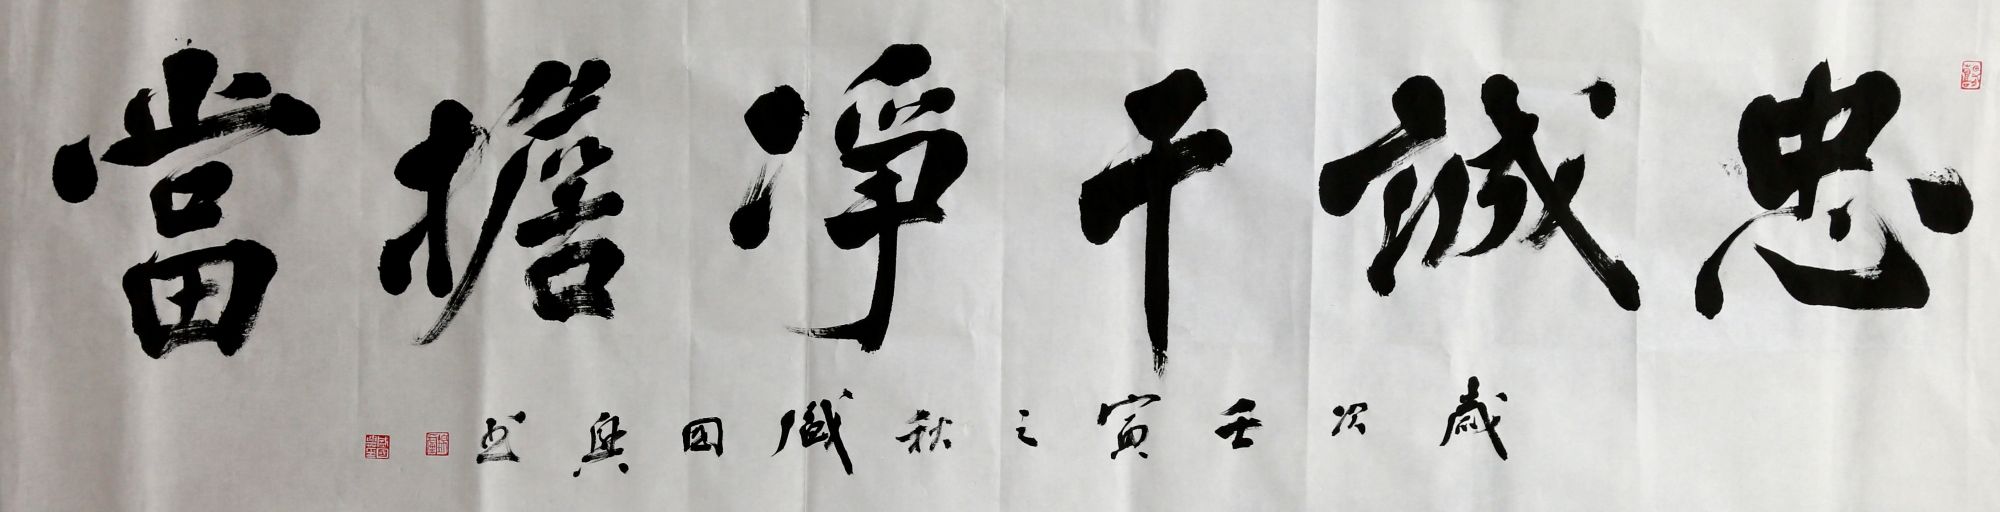 忠誠干淨擔當
歲次壬寅之秋臧国兴书